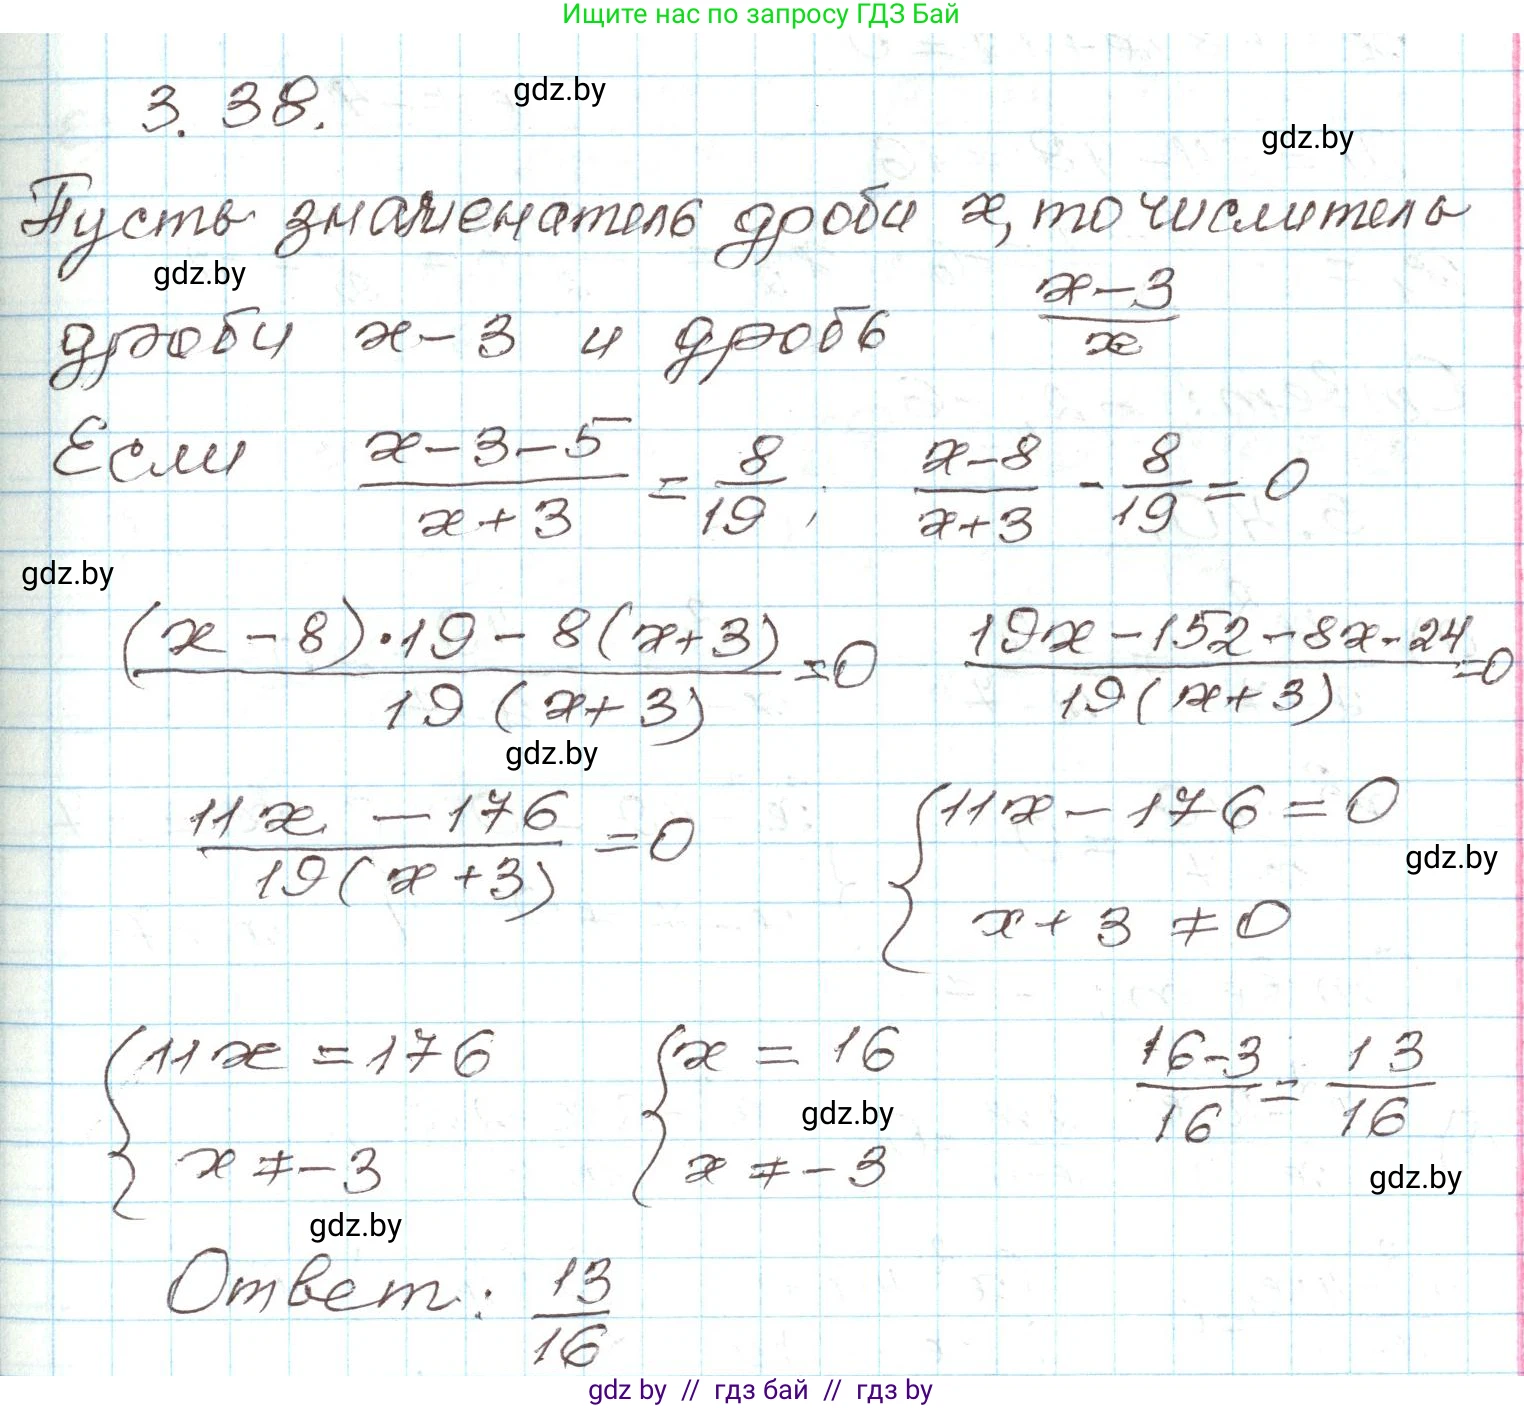 Ищите нас по запросу ГДЗ Бай
3.38.
gdz.by
gdz.by
Пусть знаменатель дроби x, то числитель
gdz.by
дроби x-3 и дробь (x-3)/x
Если (x-3-5)/(x+3) = 8/19; (x-8)/(x+3) - 8/19 = 0
gdz.by
((x-8)·19-8(x+3))/(19(x+3)) = 0 (19x-152-8x-24)/(19(x+3)) = 0
gdz.by
(11x-176)/(19(x+3)) = 0 { 11x-176=0
gdz.by
x+3≠0
{ 11x=176 { x=16 (16-3)/16 = 13/16
gdz.by
x≠-3 x≠-3
gdz.by
gdz.by
Ответ: 13/16
gdz by // гдз бай // гдз by